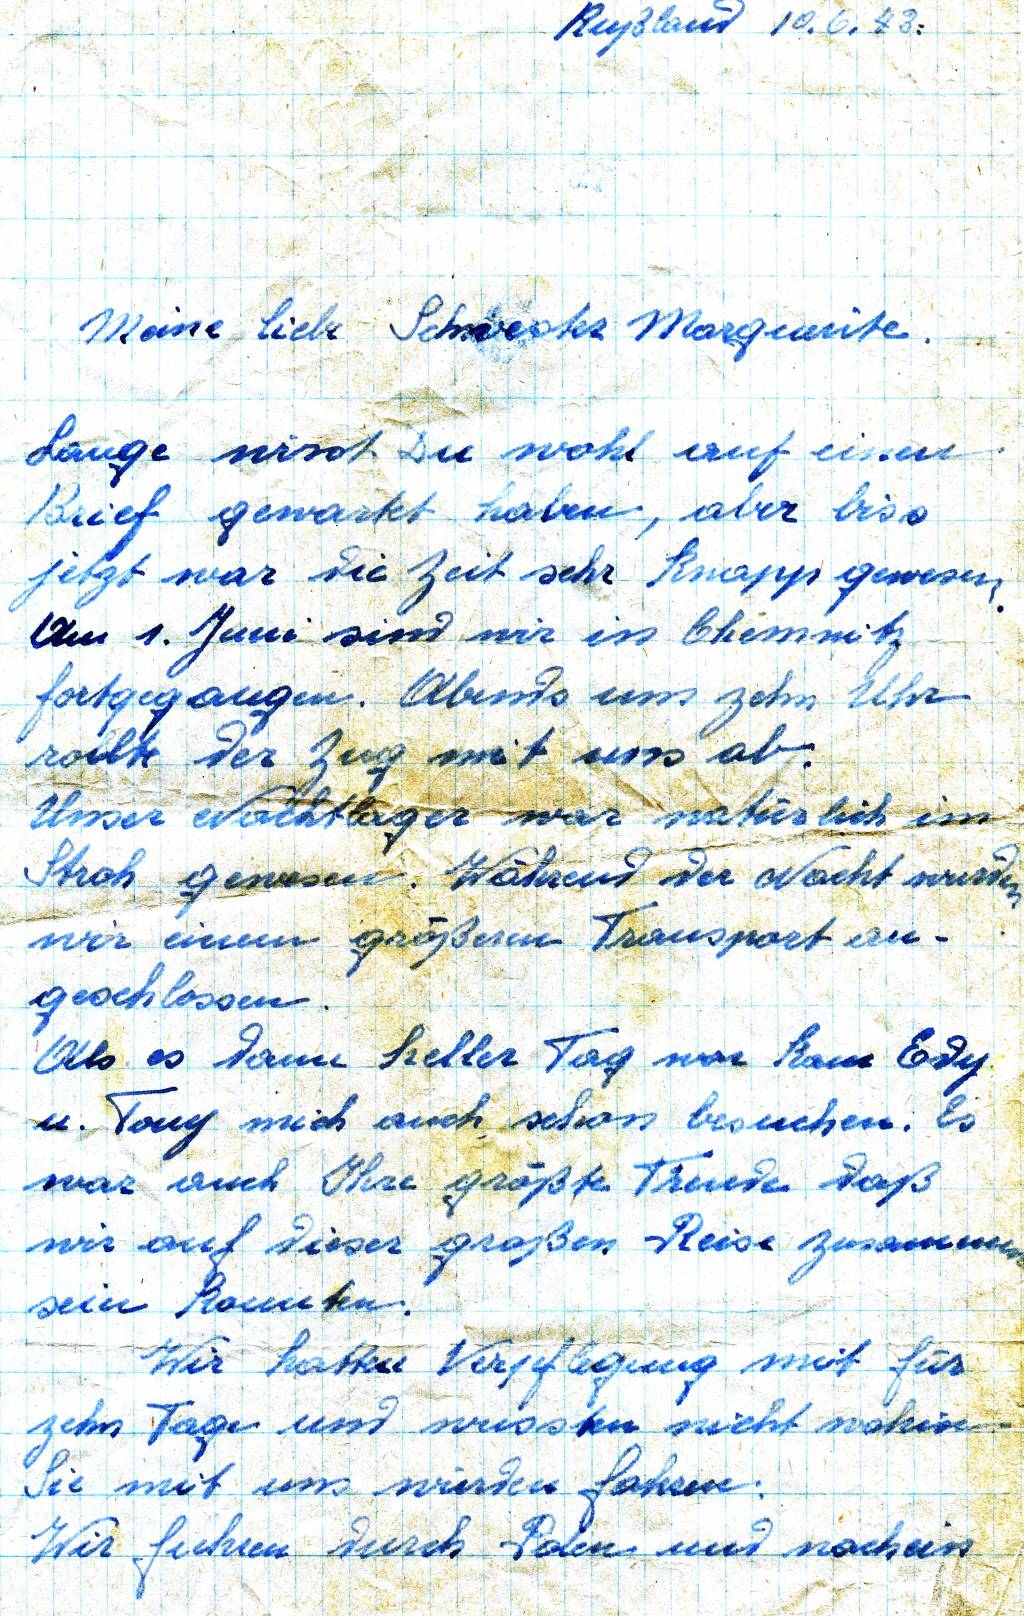 Rußland 10.6.43.
Meine liebe Schwester Marguerite.
Lange wirst Du wohl auf einen
Brief gewartet haben, aber biss
jetzt war die Zeit sehr knapp gewesen.
Am 1. Juni sind wir in Chemnitz
fortgegangen. Abends um zehn Uhr
rollte der Zug mit uns ab.
Unser Nachtlager war natürlich im
Stroh gewesen. Während der Nacht wurden
wir einem größeren Transport an-
geschlossen.
Als es dann heller Tag war kam Edy
u. Tony mich auch schon besuchen. Es
war auch Ihre größte Freude daß
wir auf dieser großen Reise zusammen
sein konnten.
Wir hatten Verpflegung mit für
zehn Tage und wussten nicht wohin
Sie mit uns würden fahren.
Wir fuhren durch Polen und nach